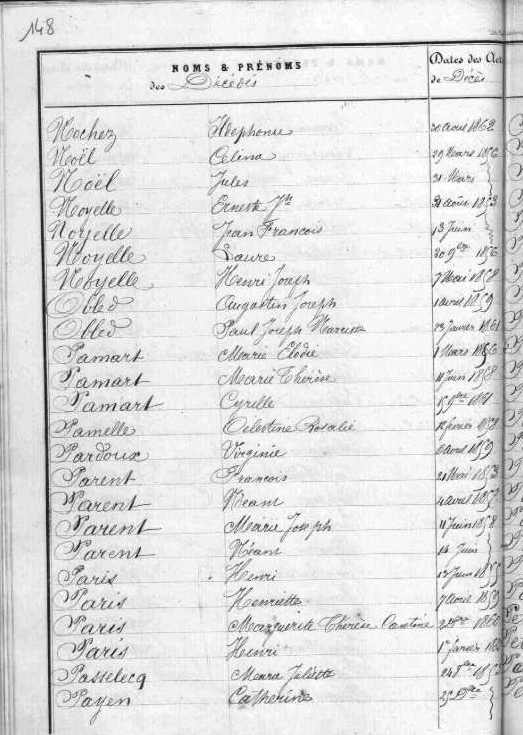 148
NOMS & PRÉNOMS
des Décédés
Dates des
de Décès
Nochez Ildephonse 20 août 1862
Noël Célina 29 Mars 1856
Noël Jules 21 Mars
Noyelle Ernest Jh août 1853
Noyelle Jean François 13 Juin
Noyelle Laure 30 9bre 1856
Noyelle Henri Joseph 7 Mai 1858
Obled Augustin Joseph 1 avril 1859
Obled Paul Joseph 23 Janvier 1861
Pamart Marie Elodie 1 Mars 1856
Pamart Marie Thérèse 11 Juin 1858
Pamart Cyrille 1861
Pamelle Célestine Rosalie février 1858
Pardoux Virginie 6 avril 1859
Parent François 21 Mai 1853
Parent Néant 4 avril 1857
Parent Marie Joseph 11 Juin 1858
Parent Néant 14 Juin
Paris Henri Juin 1855
Paris Henriette 7 août 1859
Paris Marguerite Thérèse 1860
Paris Henri 1er Janvier
Passelecq Juliette 24
Payen Catherine 25